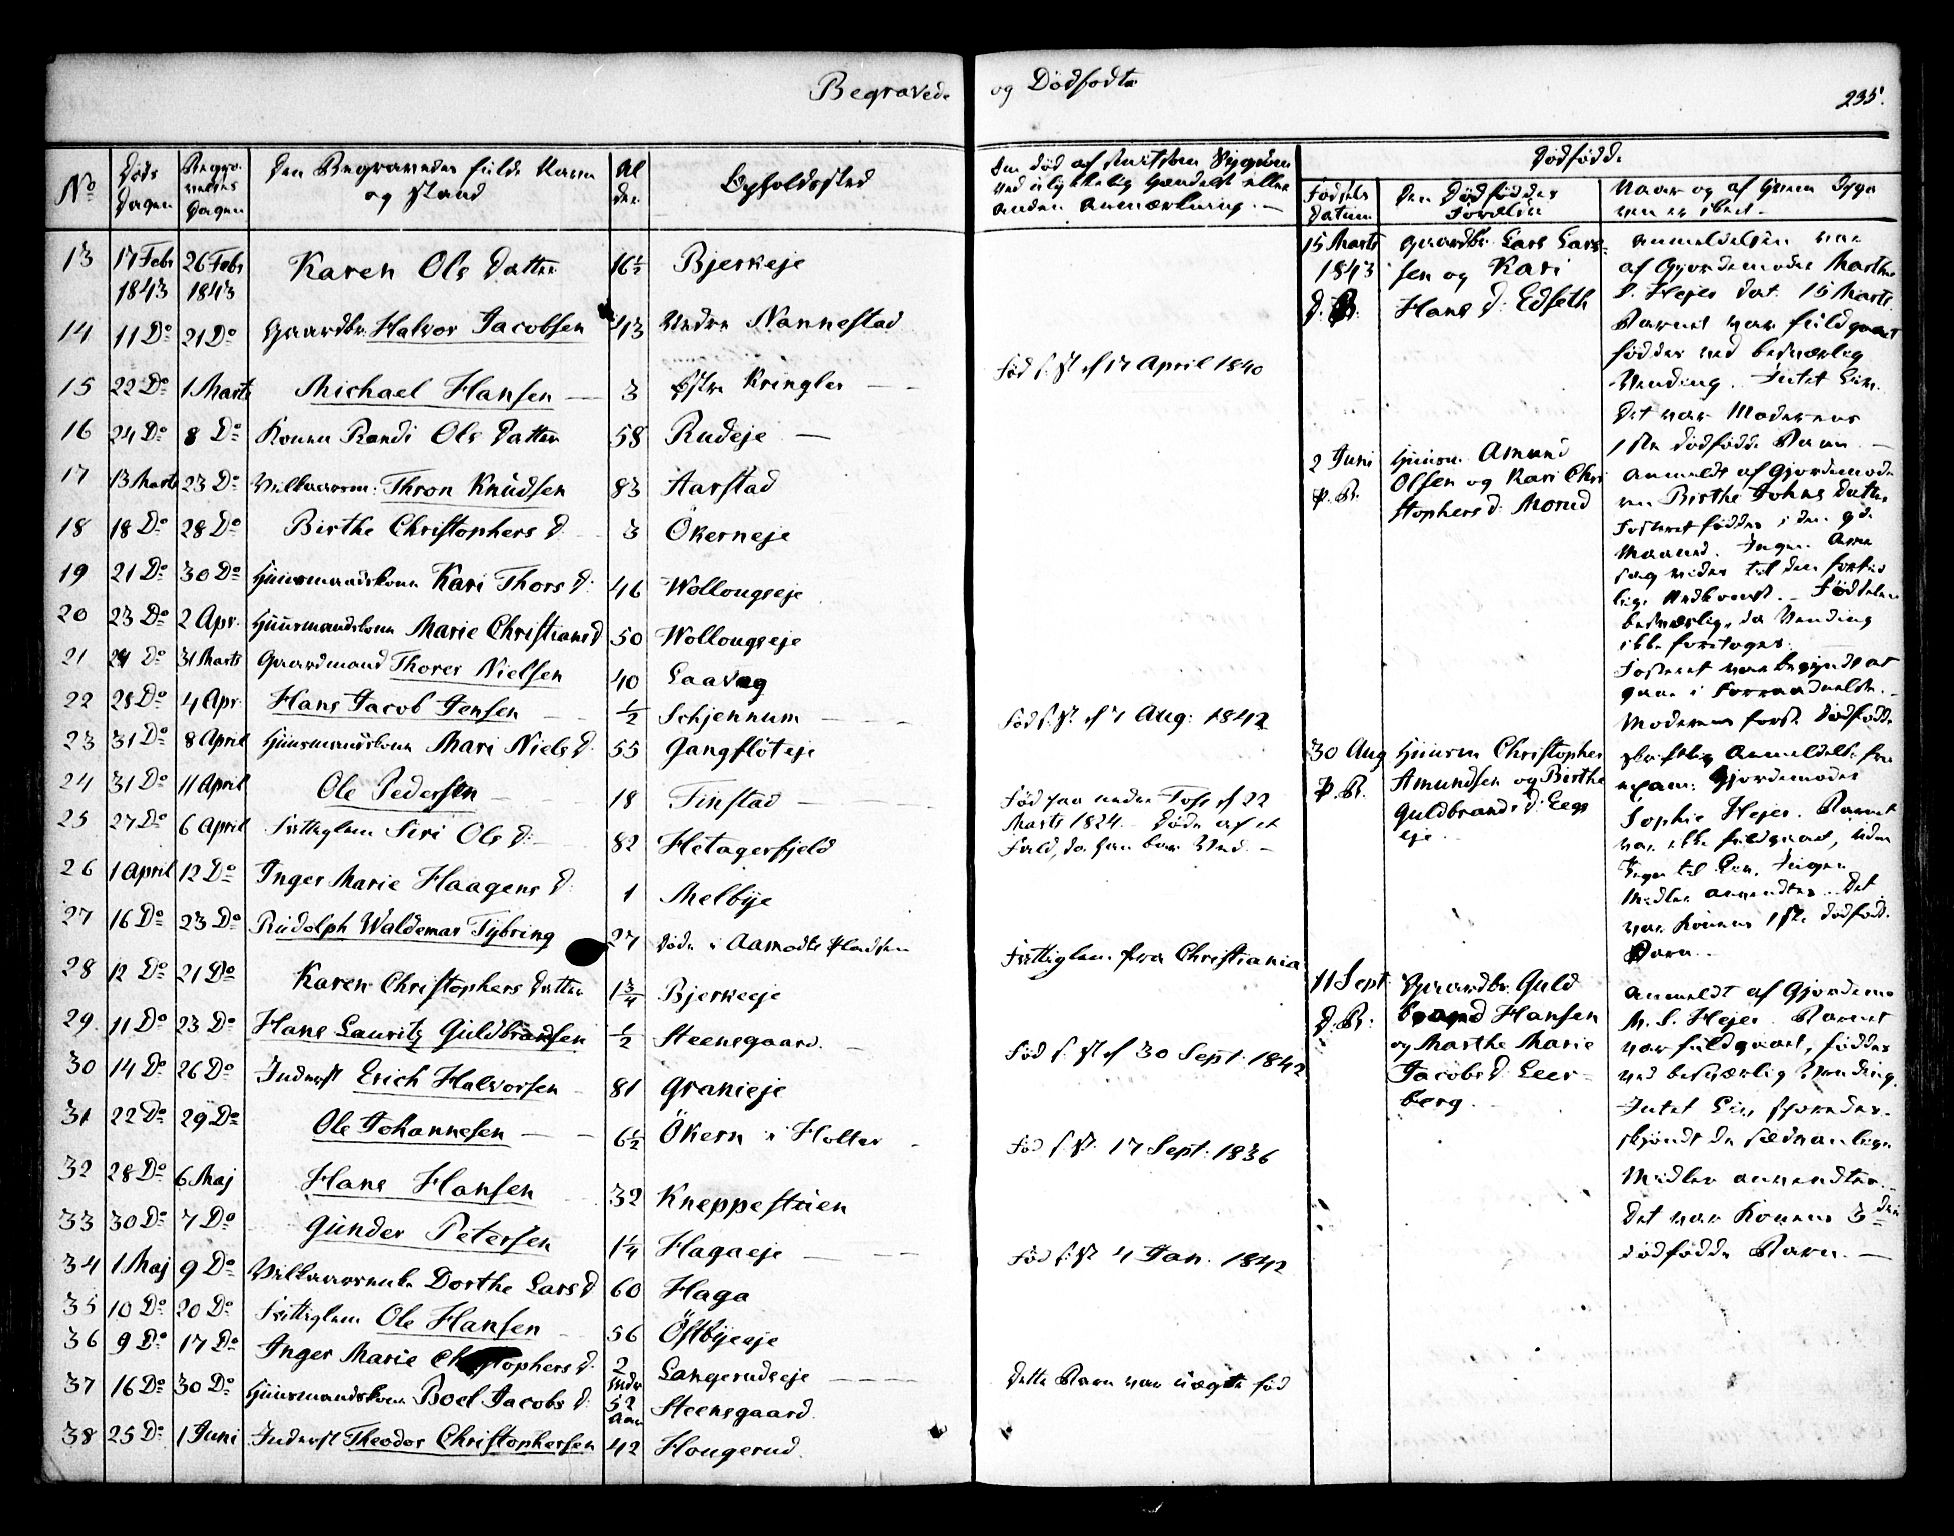 Begravede og Dødfødte
235.
No
Døds Dagen
Begravelses Dagen
Den Begravedes fulde Navn og Stand
Alder
Opholdssted
Den død af smitsom Sygdom
ved ulykkelig Hændelse eller
anden Anmærkning. —
Dødfødde
Fødsels Datum
Den Dødføddes Forældre
Naar og af hvem Opgaven er skeet. —
13 17 Febr 1843 26 Febr 1843 Karen Ols Datter 16½ Bjerkeje
14 11 Do 21 Do Gaardbr. Halvor Jacobsen 43 Nedre Nannestad
15 22 Do 1 Marts Michael Hansen — 3 Østre Kringler — Fød s. St. d 17 April 1840
16 24 Do 8 Do Konen Randi Ols Datter 58 Rudeje —
17 13 Marts 23 Do Vilkaarsm: Thron Knudsen 83 Aarstad
18 18 Do 28 Do Birthe Christophers D. 3 Ökerneje
19 21 Do 30 Do Huusmandskone Kari Thors D: 46 Wollougseje
20 23 Do 2 Apr. Huusmandskone Marie Christians D 50 Wollougseje
21 24 Do 31 Marts Gaardmand Thorer Nielsen 40 Laavog
22 28 Do 4 Apr. Hans Jacob Jensen — ½ Schjennum — Fød s. St. d 7 Aug: 1842
23 31 Do 8 April Huusmandskone Mari Niels D: 55 Gangflöteje
24 31 Do 11 April Ole Pedersen — 18 Finstad — Fød paa nedre Foss d 22
Marts 1824. — Døde af et
Fald, da han bar Ved. —
25 27 Do 6 April Fattiglem Siri Ols D: — 82 Hetagerfjeld
26 1 April 12 Do Inger Marie Haagens D 1 Melbÿe
27 16 Do 23 Do Rudolph Waldemar Tÿbring 27 døde i Aamodts Pladsen Fattiglem fra Christiania
28 12 Do 21 Do Karen Christophers Datter 1¾ Bjerkeeje
29. 11 Do 23 Do Hans Lauritz Guldbrandsen ½ Steensgaard. — Fød s. St. d 30 Sept: 1842
30 14 Do 26 Do Inderst Erich Halvorsen 81 Granieje
31 22 Do 29 Do Ole Johannesen — 6½ Ökern i Holter — Fød s. St. 17 Sept. 1836
32 28 Do 6 Maj Hans Hansen 32 Kneppestuen
33 30 Do 7 Do Gunder Petersen 1¼ Hagaeje — Fød s. St. 4 Jan. 1842
34 1 Maj 9 Do Dorthe Lars D 60 Haga
35 10 Do 20 Do Fattiglem Ole Hansen 56 Östbÿeeje
36 9 Do 17 Do Inger Marie Christophers D. 2 Langerudseje — Dette Barn var uægte fød
37 16 Do 30 Do Huusmandskone Boel Jacobs D: 52 Aar Steensgaard.
38 25 Do 1 Juni Inderst Theodor Christophersen 42 Hougerud.
15 Marts 1843 D. B.
Gaardbr. Lars Larssen og Kari
Hans D: Edseth
Anmeldelsen var
af Gjordemoder Marthe
S. Hejer dat. 15 Marts.
Barnet var fuldgaaet
føddes ved besværlig
Vending. Intet Liv.
Det var Moderens
1ste dødfødde Barn. —
2 Juni P. B.
Huusm. Amund
Olsen og Kari Christophers D: Morud
Anmeldt af Gjordemoderen Birthe Johns Datter
Fosteret føddes i den 9de
Maaned. Ingen Aarsag vides til den fortidlige Nedkomst. — Fødselen
besværlig, da Vending
ikke foretoges.
Fosteret var begyndt at
gaae i Forraadnelse. —
Moderens første Dødfødde
30 Aug P. B.
Huusm Christopher
Amundsen og Birthe
Guldbrands D: Eegseje
Skriftlig Anmeldelse fra
exam: Gjordemoder
Sophie Hejer. Barnet
var ikke fuldgaaet, uden
Tegn til Liv. Ingen
Midler anvendtes. Det
var Konens 1ste dødfødde
Barn. —
11 Sept D. B:
Gaardbr. Guldbrand Hansen
og Marthe Marie
Jacobs D: Leerberg.
Anmeldt af Gjordem.
M. S. Hejer. Barnet
var fuldgaaet, føddes
ved besværlig Vending.
Intet Liv sporedes.
skjøndt de sædvanlige
Midler anvendtes. —
Det var Konens 3die
dødfødde Barn. —